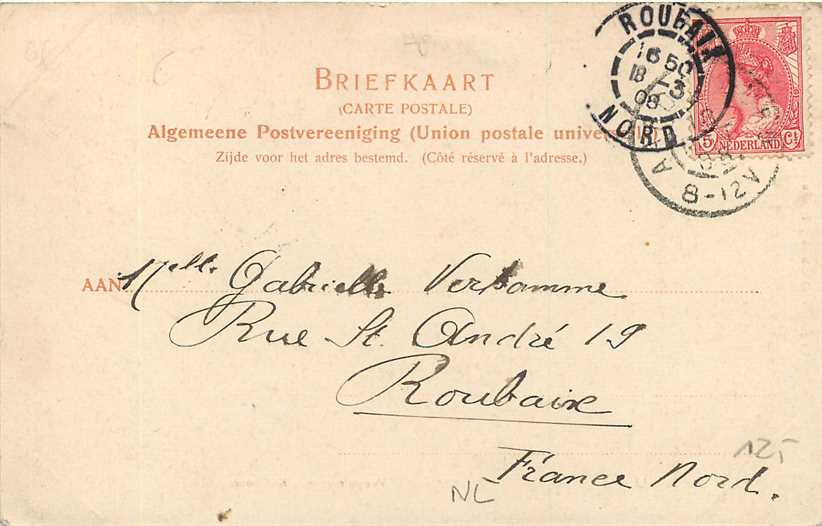 BRIEFKAART
(CARTE POSTALE)
Algemeene Postvereeniging (Union postale
Zijde voor het adres bestemd. (Côté réservé à l'adresse.)
ROUBAIX
16 50
18 -3
08
NORD
5 Ct
NEDERLAND
8-12V
AAN Melle Gabrielle Verbamme
Rue St. André 19
Roubaix
France Nord.
NL
125